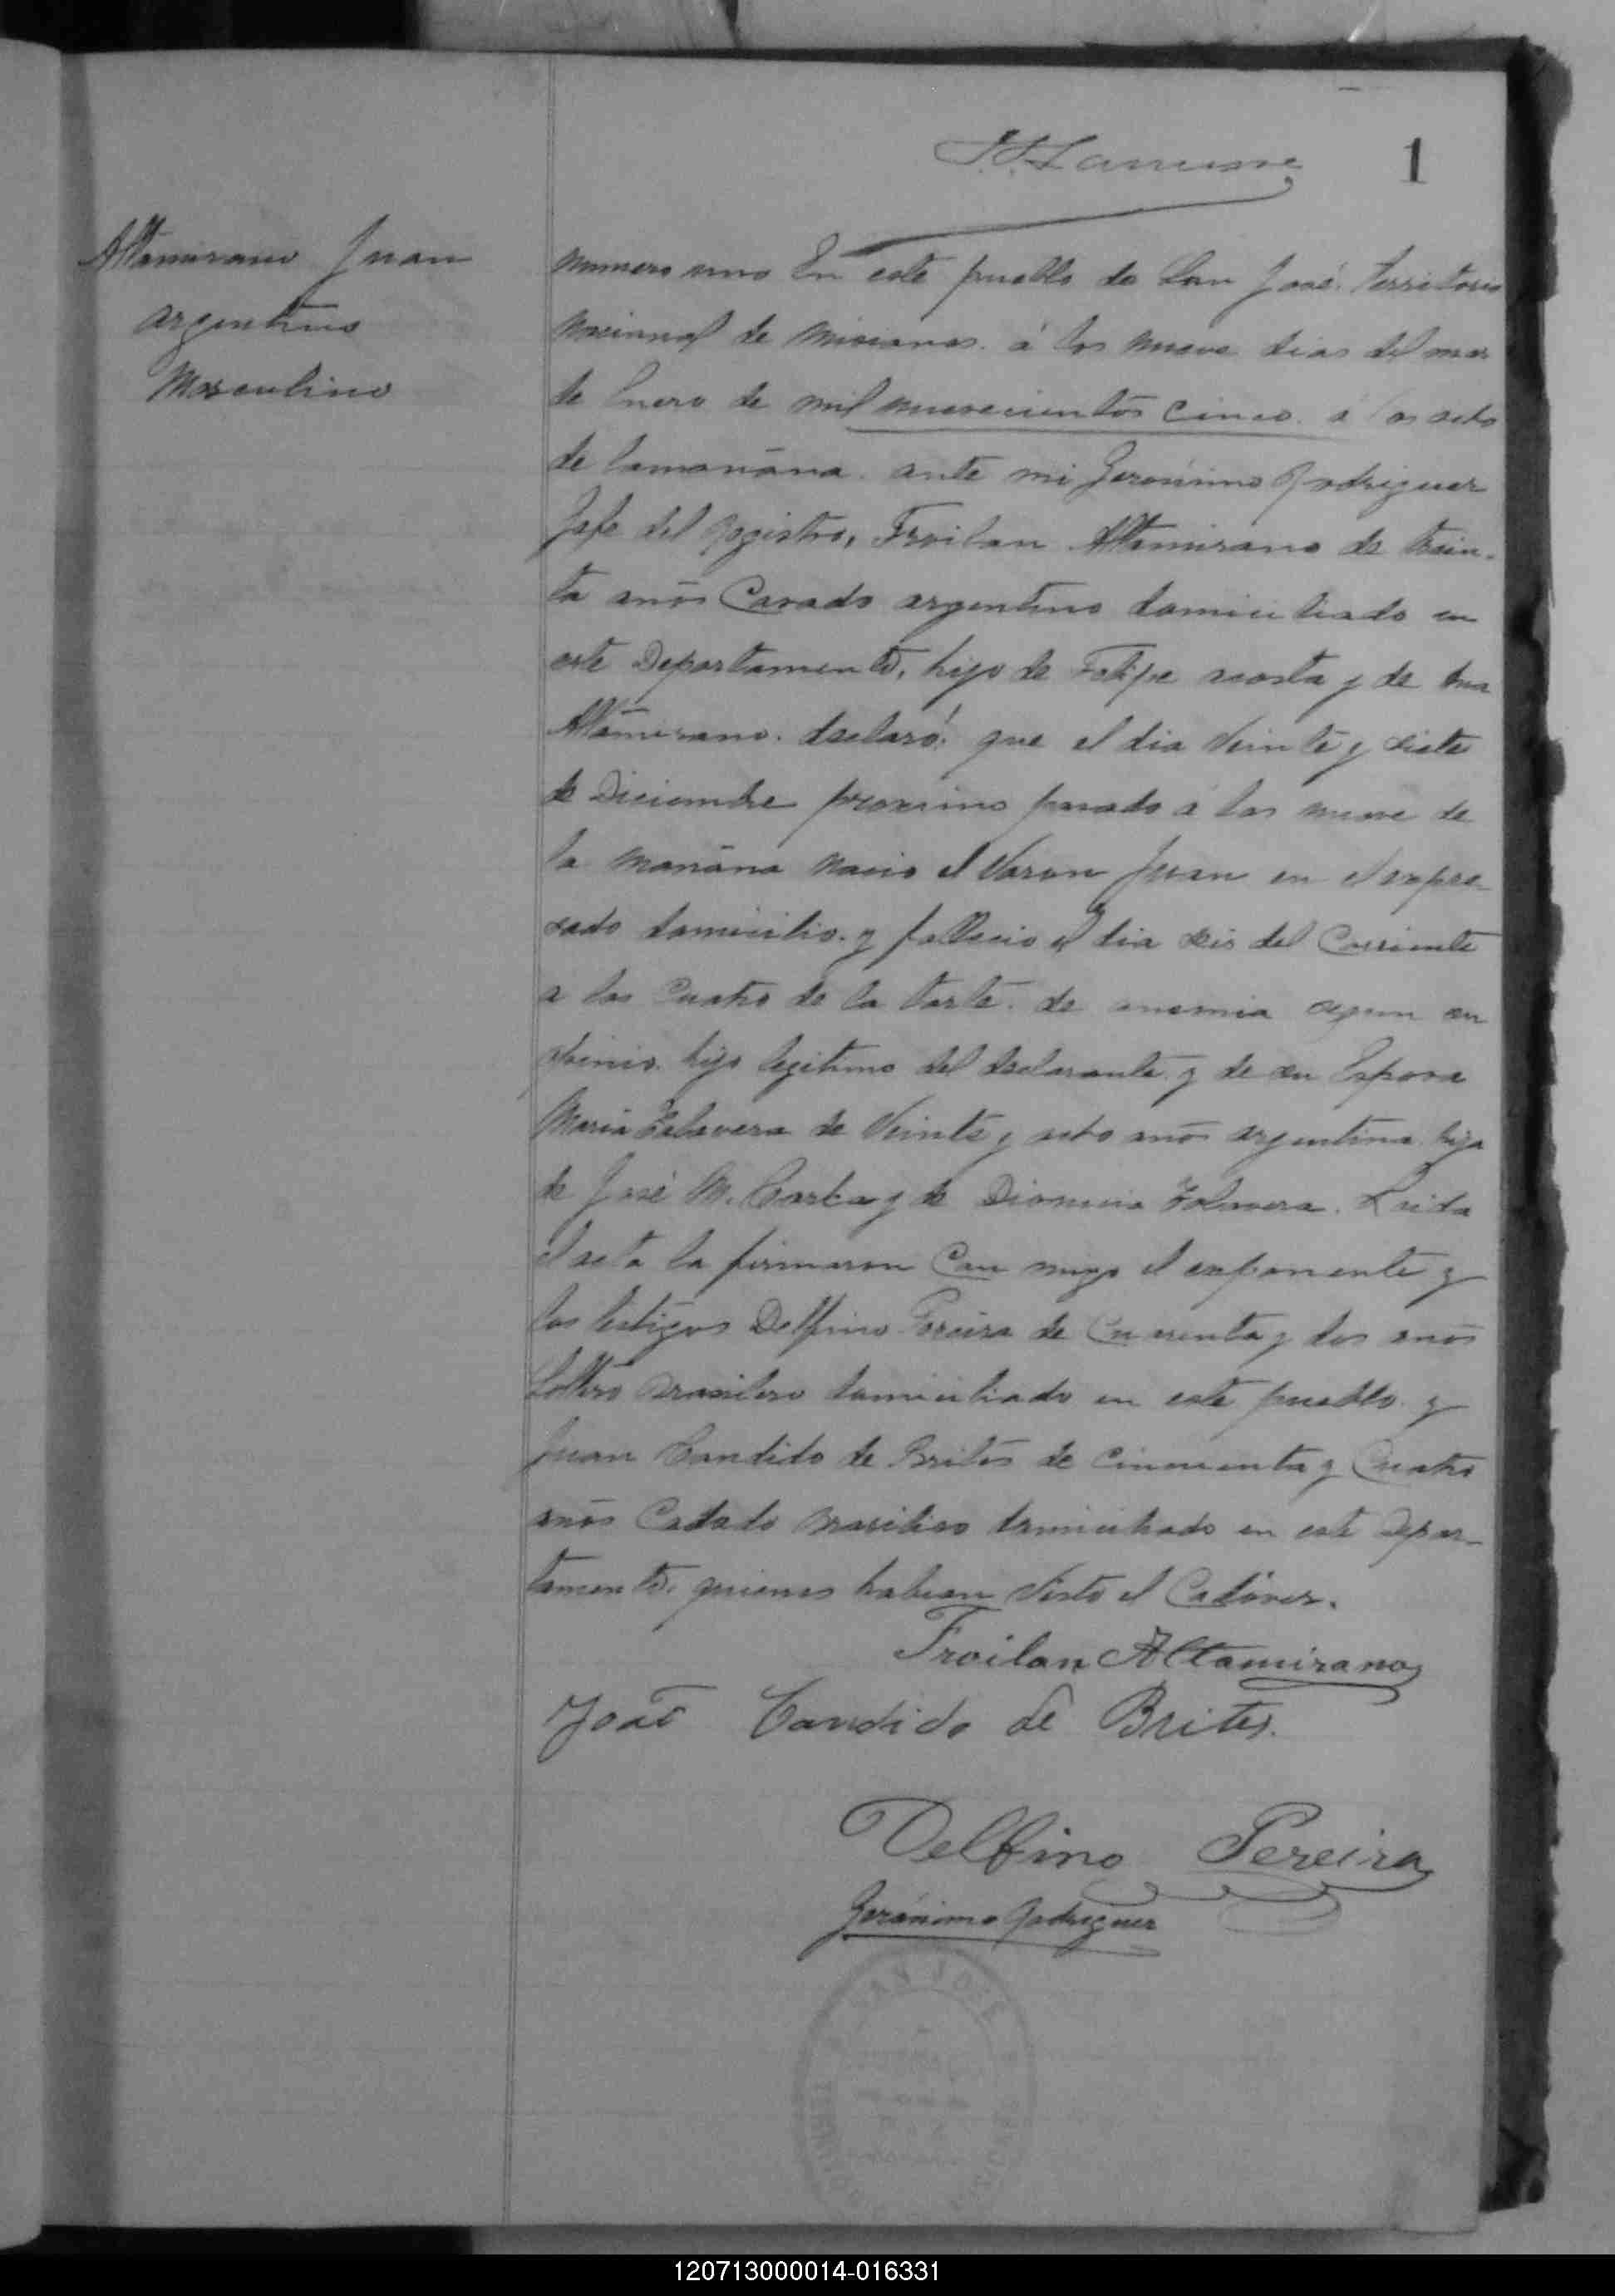 1
Altamirano Juan
argentino
Masculino
numero uno En este pueblo de San José. Territorio
nacional de Misiones. á los nueve dias del mes
de Enero de mil nuevecientos cinco. á las ocho
de lamañana. ante mi Geronimo Rodriguez
Jefe del Registro, Froilan Altamirano de trein-
ta años Casado argentino domiciliado en
este Departamento, hijo de Felipe acosta y de
Altamirano. declaró: que el dia Veinte y siete
de Diciembre proximo pasado á las nueve de
la mañana nacio el Varon Juan en el expre-
sado domicilio. y fallecio el dia seis del Corriente
a las Cuatro de la tarde. de anemia segun su
hijo legitimo del declarante y de su Esposa
Maria Talavera de Veinte y ocho años argentina hija
de José M. y de Dionicia Talavera. Leida
el acta la firmaron Con migo el exponente y
los testigos Delfino Pereira de Cuarenta y dos años
Soltero Brasilero domiciliado en este pueblo. y
Juan Candido de Brites de Cincuenta y Cuatro
años Casado brasilero domiciliado en este Depar-
tamento. quienes habian Visto el Cadáver.
Froilan Altamirano
João Candido de Brites.
Delfino Pereira
Gerónimo Rodriguez
SAN JOSE
120713000014-016331